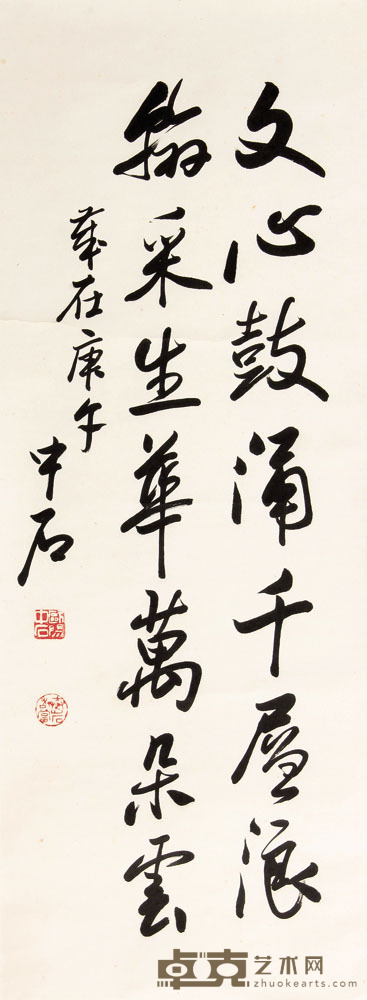 文心鼓涌千层浪
翰采生华萬朵雲
岁在庚午
中石
歐陽中石
卓克艺术网
zhuokearts.com